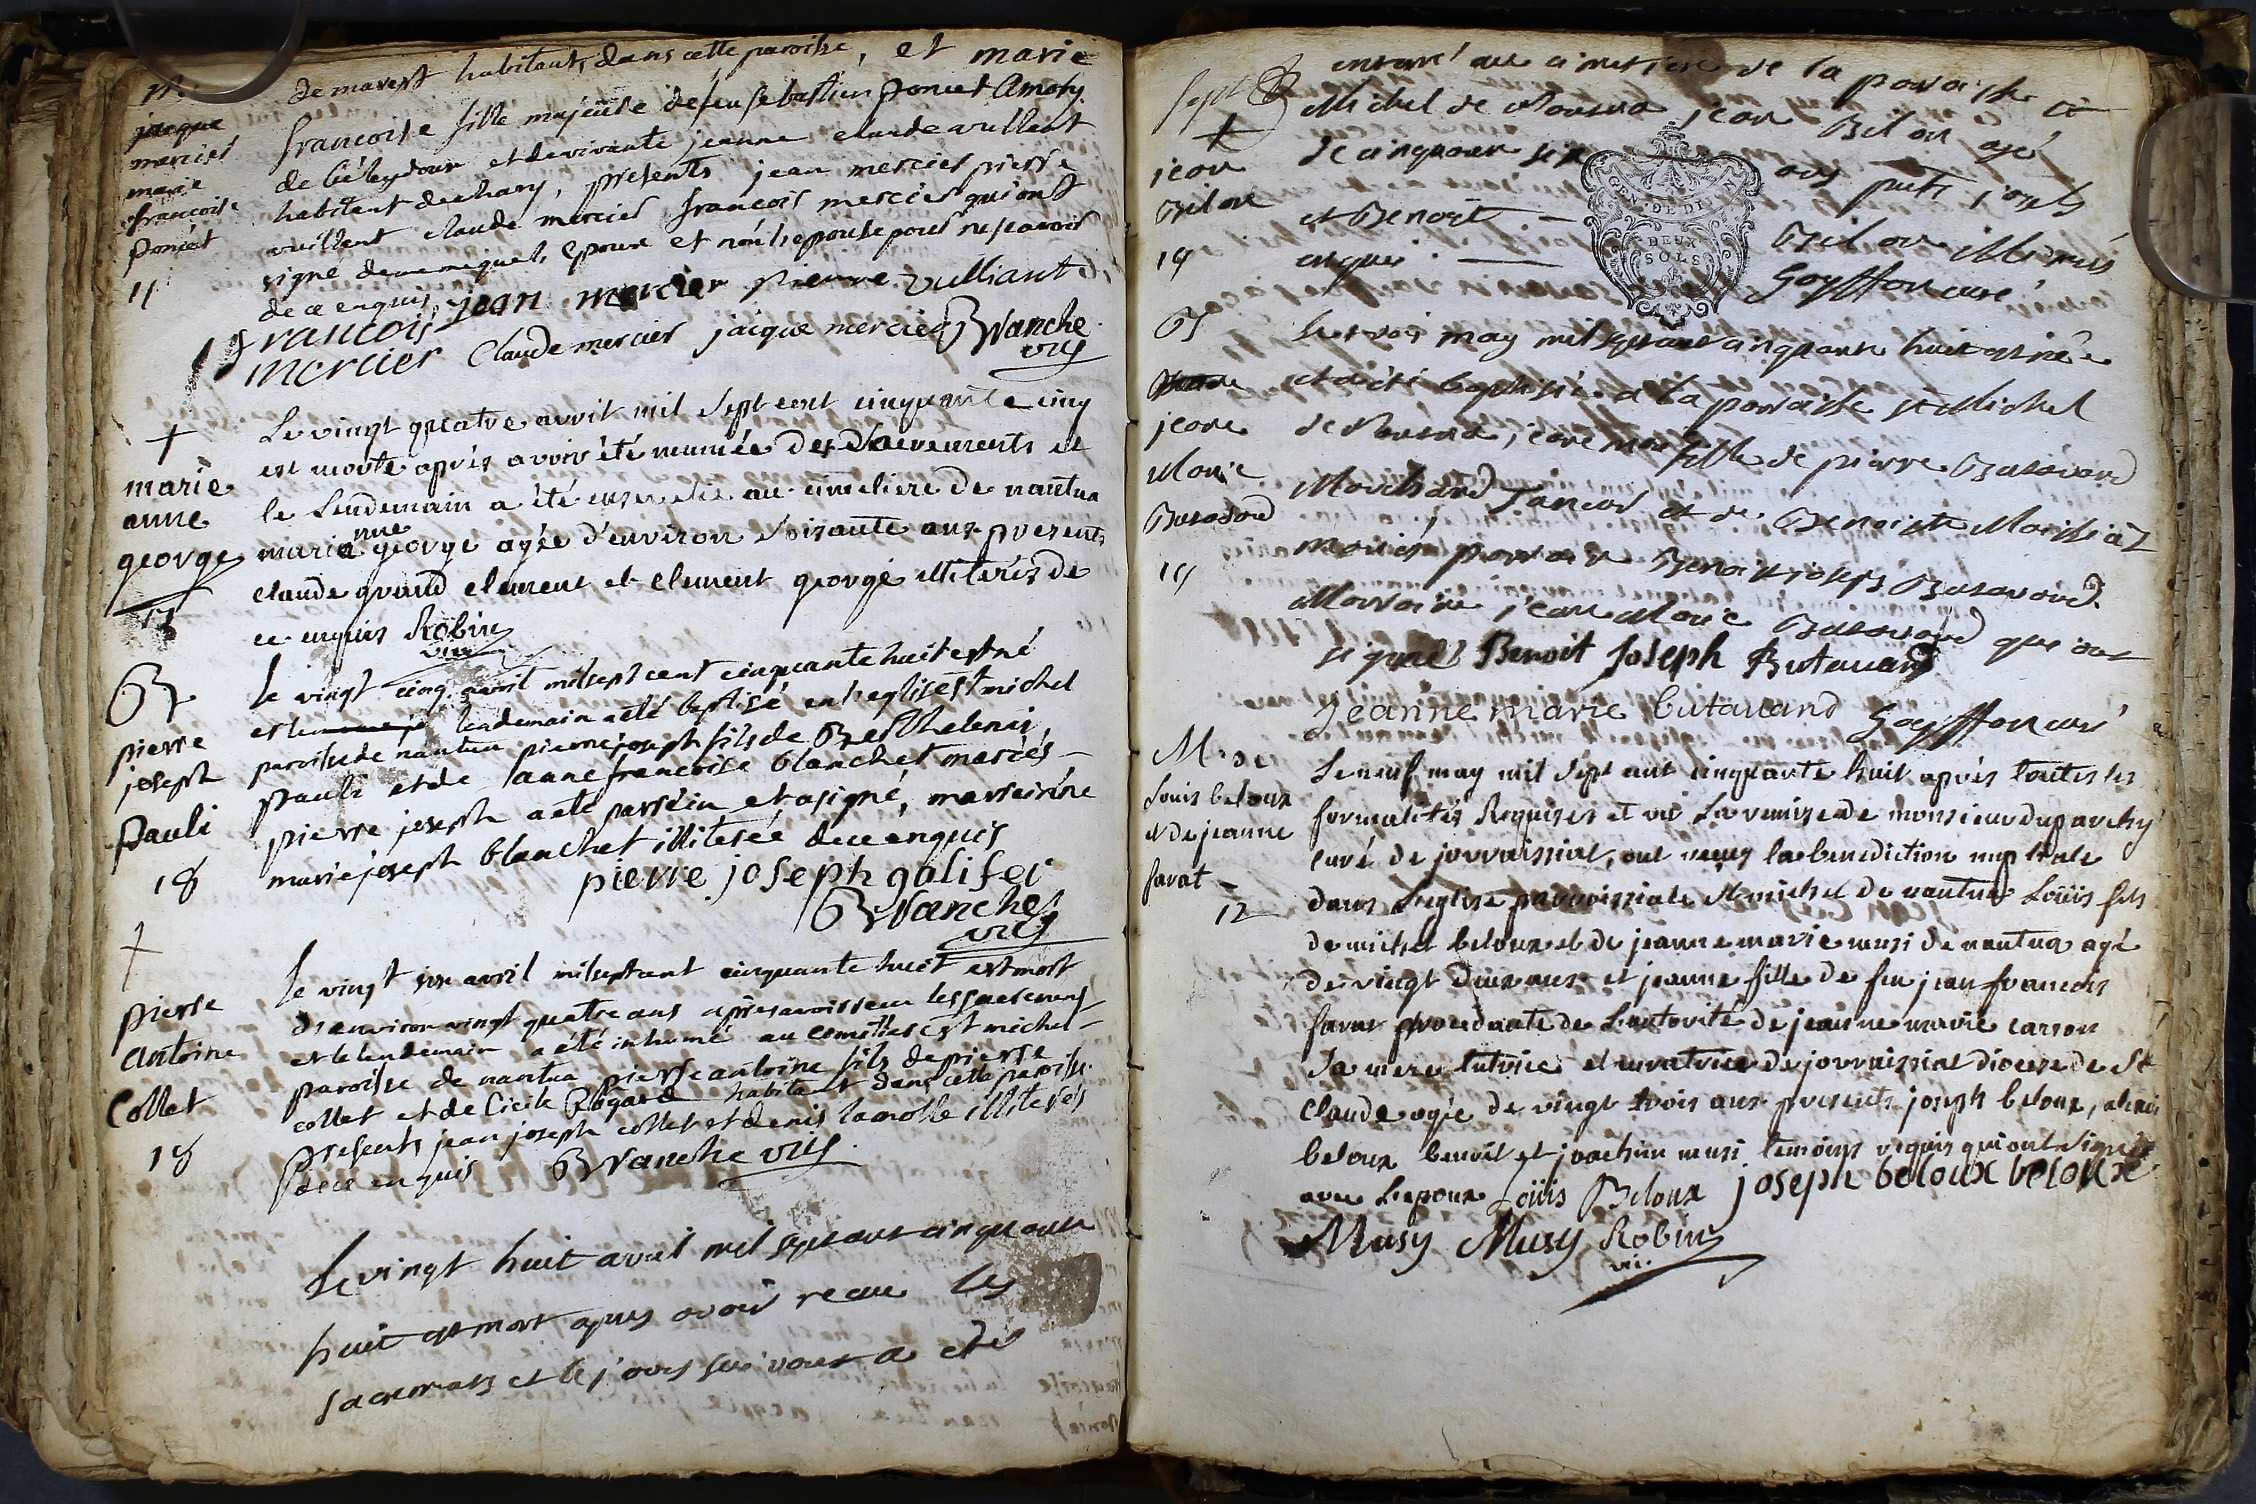 de mavest habitant, dans cette paroisse, et marie
jacque
mercier
marie
francoise
poncet
11
francoise fille majeure de feu sebastien poncet
de et de vivante jeanne claude vullient
habitant de chary, presents jean mercier pierre
vuillent claude mercier francois mercier qui ont
signé de ce enquis epoux et non lepouse pour ne scavoir
de ce enquis jean mercier pierre vulliant
francois
mercier claude mercier jacque mercier Branche
vic
+
marie
anne
george
18
Le vingt quatre avril mil sept cent cinquante cinq
est morte aprés avoir été munïée des sacrements et
le lendemain a été ensevelie au cimetiere de nantua
nne
maria george agée d'environ soixante ans presents
claude grand clement et clement george illiterés de
ce enquis Robin
vic
B
pierre
joseph
pauli
18
le vingt cinq avril mil sept cent cinquante huit est né
et le lendemain a été baptisé en l'eglise st michel
paroisse de nantua pierre joseph fils de Berthelemi
pauli et de anne francoise blanchet mariés
pierre joseph a été parrein et a signé, marreine
marie joseph blanchet illiterée de ce enquis
pierre joseph galifer
Branche
vic
+
pierre
antoine
Collet
18
le vingt six avril mil sept cent cinquante huit est mort
d'environ vingt quatre ans apres avoir receu les sacrements
et le lendemain a été inhumé au cemettiere st michel
paroisse de nantua pierre antoine fils de pierre
collet et de Cicile habitant dans cette paroisse
presents jean joseph collet et denis lamolle illiterés
de ce enquis Branche vic
Le vingt huit avril mil sept cent cinquante
huit est mort apres avoir receu les
sacremants et le jour suivant a eté
Sept
+
jean
Bilon
19
enterré au cimetiere de la paroisse st
Michel de Nantua jean Bilon agé
de cinquante six ans puts joseph
et Benoit Bilon illiterés
enquis Goyffon curé
GEN. DE DIJON
DEUX
SOLS
B
jeane
Marie
Butavand
19
Le trois may mil sept cent cinquante huit est née
et a été baptisée a la paroisse st Michel
de Nantua jeane marie fille de pierre Butavand
Marchand Taneur et de Benoiste Moissiat
mariés parrain Benoit joseph Butavand
Marraine jeane Marie Butavand qui ont
signé Benoit Joseph Butavand
Jeanne marie butavand Goyffon curé
M. de
Louis beloux
et de jeanne
favat
12
Le neuf may mil sept cent cinquante huit aprés toutes les
formalités Requises et vu la remise de monsieur duparchy
curé de jovraissiat, ont receus la benediction nuptiale
dans L'eglise parroissiale st michel de nantua Loüis fils
de michel beloux et de jeanne marie musi de nantua agé
de vingt deux ans et jeanne fille de feu jean francois
favat procedante de L'autorité de jeanne marie carron
sa mere tutrice et curatrice de jovraissiat diocese de St
Claude agée de vingt trois ans presents joseph beloux, alexis
beloux benoit et joachim musi temoins requis qui ont signé
avec L'epoux Loüis Beloux joseph beloux beloux
Musy Musy Robin
vic.